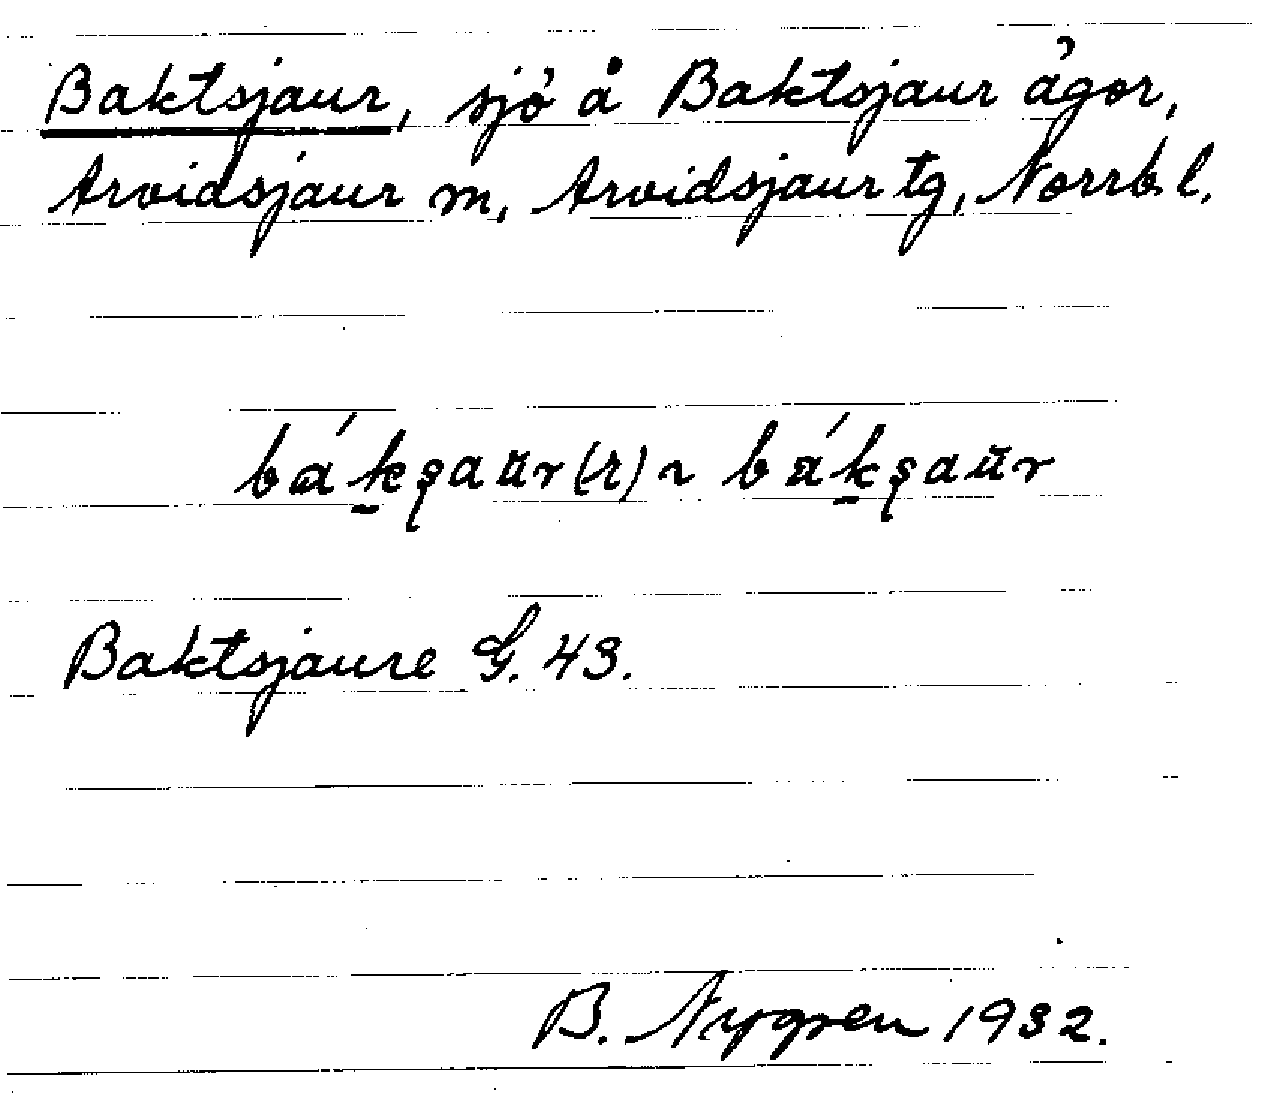 Baktsjaur, sjö å Baktsjaur ägor,
Arvidsjaur m, Arvidsjaur tg, Norrb. l.
bákşaŭr(r) ~ bákşaŭr
Baktsjaure G. 43.
B. Nygren 1932.